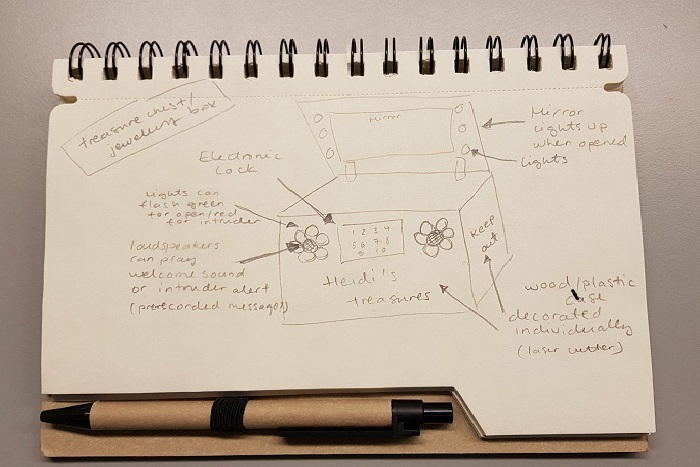 treasure chest/
jewellery box
Electronic
Lock
Mirror
Mirror
lights up
when opened
lights
Lights can
flash green
for open/red
for intruder
loudspeakers
can play
welcome sound
or intruder alert
(prerecorded message?)
1 2 3 4
5 6 7 8
9 10
Heidi's
treasures
Keep
out
wood/plastic
case
decorated
individually
(laser cutter)